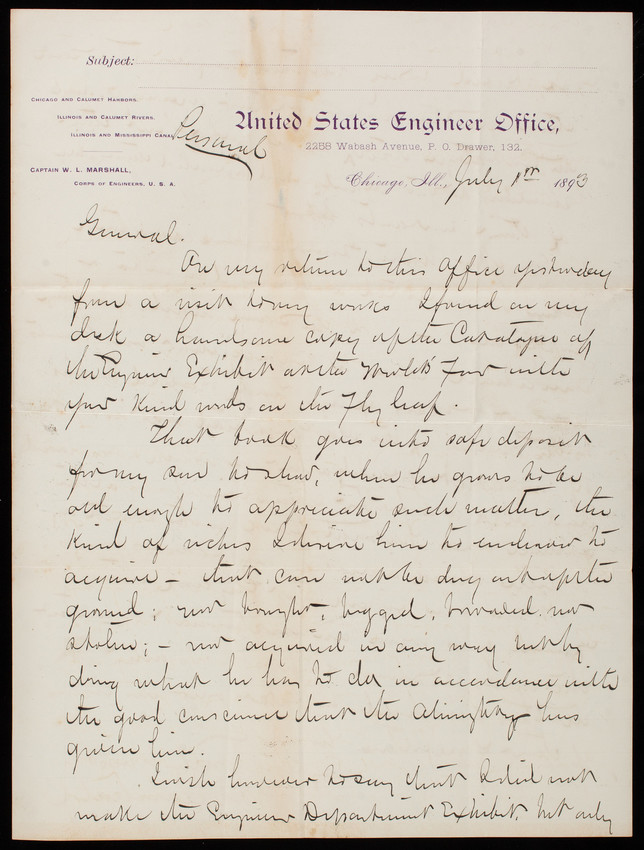 Subject:
Chicago and Calumet Harbors.
Illinois and Calumet Rivers.
Illinois and Mississippi Canal
Personal
United States Engineer Office,
2258 Wabash Avenue, P. O. Drawer, 132.
Captain W. L. Marshall,
Corps of Engineers, U. S. A.
Chicago, Ill., July 1st 1893
General.
On my return to this office yesterday
from a visit to my works I found on my
desk a handsome copy of the Catalogue of
the Engineer Exhibit at the World's Fair with
your kind words on the Fly leaf.
That book goes into safe deposit
for my son to read, when he grows to be
old enough to appreciate such matter, the
kind of riches I desire him to endeavor to
acquire – that can not be dug out of the
ground; nor bought, begged, borrowed nor
stolen; – nor acquired in any way but by
doing what he has to do in accordance with
the good conscience that the Almighty has
given him.
I wish however to say that I did not
make the Engineer Department Exhibit, but only